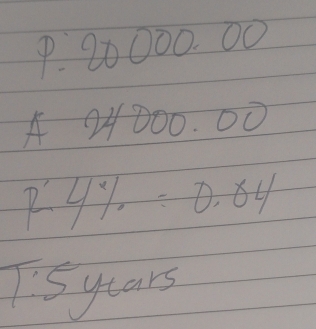 P: 20 000. 00
A 24 000. 00
R 4% = 0.04
T: 5 years